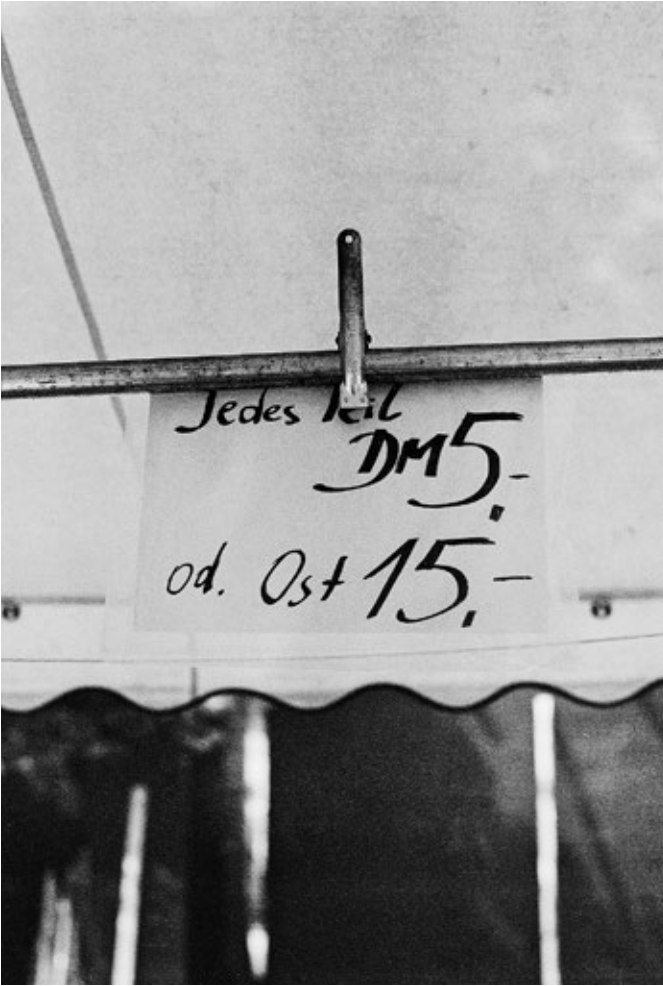 Jedes Teil
DM 5,-
od. Ost 15,-